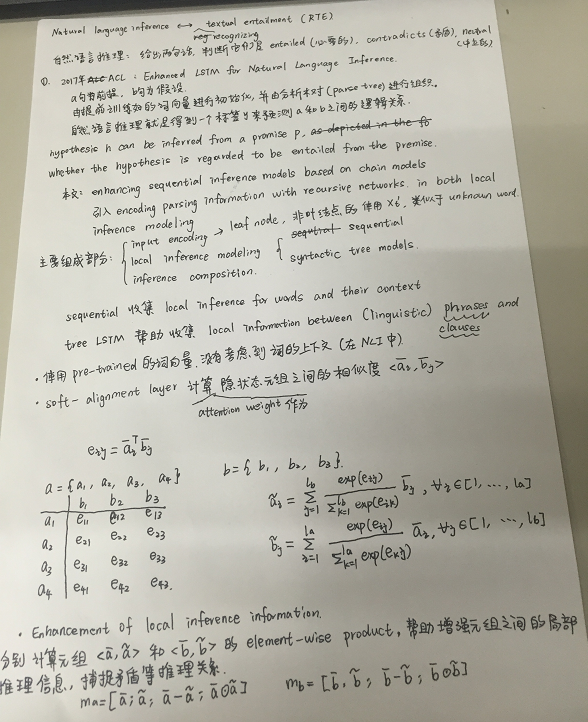 Natural language inference ↔ textual entailment (RTE)
recognizing
自然语言推理: 给出两句话, 判断它们是 entailed (必要的), contradicts (矛盾), neutral
(中立的)
①. 2017年 ACL: Enhanced LSTM for Natural Language Inference.
a句为前提, b句为假设.
由提前训练好的词向量进行初始化, 并由分析树对 (parse tree) 进行组织.
自然语言推理就是得到一个标签y来预测a和b之间的逻辑关系.
hypothesis h can be inferred from a promise p, as depicted in the fo
whether the hypothesis is regarded to be entailed from the premise.
本文: enhancing sequential inference models based on chain models
引入 encoding parsing information with recursive networks. in both local
inference modeling
主要组成部分: { input encoding → leaf node, 非叶结点的使用 xt', 类似于 unknown word.
local inference modeling { sequtral sequential
inference composition. syntactic tree models.
sequential 收集 local inference for words and their context
tree LSTM 帮助收集 local information between (linguistic) phrases and
clauses
· 使用 pre-trained 的词向量, 没有考虑到词的上下文 (在NLI中).
· soft-alignment layer 计算隐状态元组之间的相似度 <āi, b̄j>
attention weight 作为
eij = āiᵀ b̄j
a = {a1, a2, a3, a4} b = {b1, b2, b3}.
b1 b2 b3
a1 e11 e12 e13
a2 e21 e22 e23
a3 e31 e32 e33
a4 e41 e42 e43.
ãi = Σ_{j=1}^{lb} exp(eij) / Σ_{k=1}^{lb} exp(eik) b̄j, ∀i∈[1, …, la]
b̃j = Σ_{i=1}^{la} exp(eij) / Σ_{k=1}^{la} exp(ekj) āi, ∀j∈[1, …, lb]
· Enhancement of local inference information.
分别计算元组 <ā, ã> 和 <b̄, b̃> 的 element-wise product, 帮助增强元组之间的局部
推理信息, 捕捉矛盾等推理关系.
ma = [ā; ã; ā-ã; ā⊙ã] mb = [b̄, b̃; b̄-b̃; b̄⊙b̃]